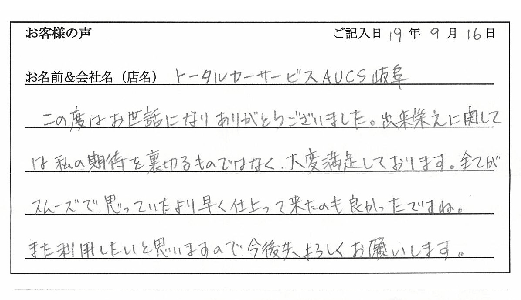 お客様の声 ご記入日 19年 9月 16日
お名前&会社名（店名） トータルカーサービスAUCS岐阜
この度はお世話になりありがとうございました。出来栄えに関して
は私の期待を裏切るものではなく、大変満足しております。全てが
スムーズで思っていたより早く仕上って来たのも良かったですね。
また利用したいと思いますので今後共よろしくお願いします。